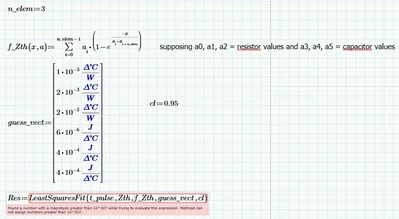 n_elem:=3
f_Zth(x,a):= n_elem-1 ∑ i=0 a_i·(1-e^(-x/(a_i·a_(i+n_elem)))) supposing a0, a1, a2 = resistor values and a3, a4, a5 = capacitor values
guess_vect:= [1·10⁻³ Δ°C/W
2·10⁻³ Δ°C/W
2·10⁻² Δ°C/W
6·10⁻⁶ J/Δ°C
4·10⁻⁴ J/Δ°C
4·10⁻⁴ J/Δ°C]
cl:=0.95
Res:=LeastSquaresFit(t_pulse,Zth,f_Zth,guess_vect,cl)
Found a number with a magnitude greater than 10^307 while trying to evaluate this expression. Mathcad can
not assign numbers greater than 10^307.